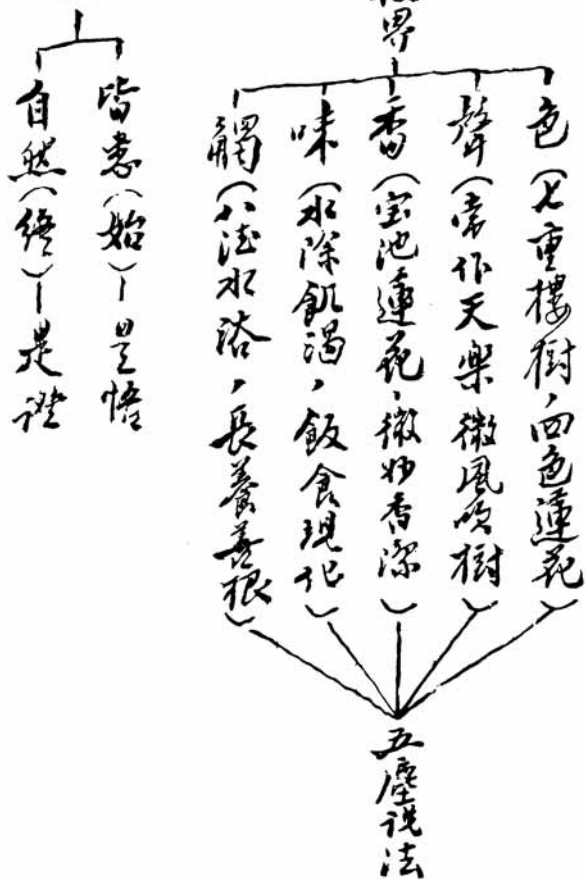 界
色(七重樓樹,四色蓮花)
聲(常作天樂微風吹樹)
香(宝池蓮花,微妙香潔)
味(水除飢渴,飯食現化)
觸(八法水浴,長養善根)
五塵说法
皆悉(始)—是悟
自然(終)—是證